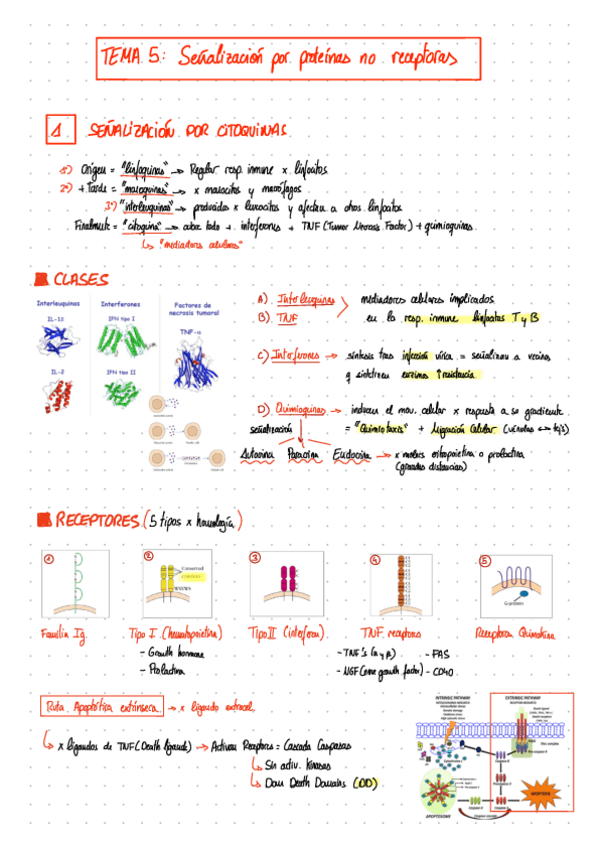 TEMA 5: Señalización por proteínas no receptoras
1 SEÑALIZACIÓN POR CITOQUINAS
1º) Origen = "linfoquinas" → Regular resp. inmune x linfocitos
2º) + Tarde = "monoquinas" → x monocitos y macrófagos
3º) "interleuquinas" → producido x leucocitos y afectan a otros linfocitos
Finalmente = "citoquina" → sobre todo + interferones + TNF (Tumor Necrosis Factor) + quimioquinas.
↳ "mediadores celulares"
CLASES
Interleuquinas Interferones Factores de necrosis tumoral
IL-1β IFN tipo I TNF-α
IL-2 IFN tipo II
A) Interleuquinas
B) TNF
mediadores celulares implicados
en la resp. inmune linfocitos T y B
C) Interferones → síntesis tras infección vírica = señalizan a vecinos
y sinteticen enzimas ↑resistencia
D) Quimioquinas → inducen el mov. celular x respuesta a su gradiente
señalización = "Quimiotaxis" + Migración Celular (vénulas ↔ tejs)
Autocrina Paracrina Endocrina → x moleis eritropoietina o prolactina
(grandes distancias)
RECEPTORES (5 tipos x homología)
1 2 3 4 5
Conserved
WSXWS
G-protein
Familia Ig. Tipo I (hematopoietina) Tipo II (interferon) TNF receptores Receptores Quimokina
- Growth hormone
- Prolactina
- TNF's (α y β) - FAS
- NGF (nerve growth factor) - CD40
Ruta Apoptótica extrínseca → x ligando extracel.
↳ x ligandos de TNF (Death ligands) → Activan Receptores = Cascada Caspasas
↳ Sin activ. kinasas
↳ Dom Death Domains (DD)
INTRINSIC PATHWAY
EXTRINSIC PATHWAY
APOPTOSOME
APOPTOSIS